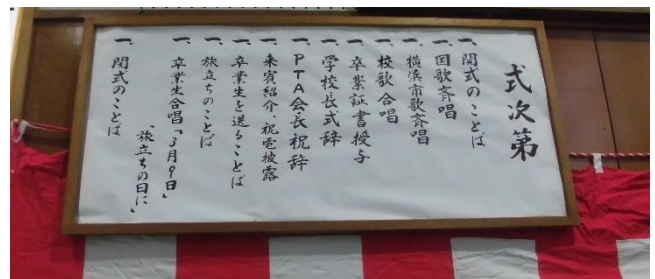 式次第
一、開式のことば
一、国歌斉唱
一、横浜市歌斉唱
一、校歌合唱
一、卒業証書授与
一、学校長式辞
一、PTA会長祝辞
一、来賓紹介、祝電披露
一、卒業生を送ることば
一、旅立ちのことば
一、卒業生合唱「3月9日」
「旅立ちの日に」
一、閉式のことば